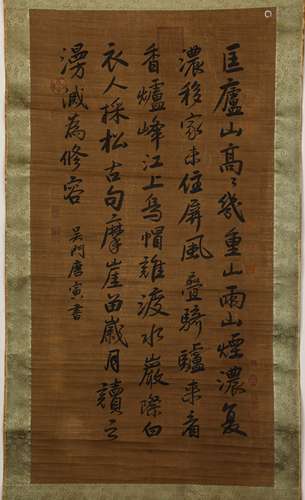 匡廬山高高幾重山雨山煙濃复
濃移家未住屏風疊騎驢來看
香爐峰江上烏帽誰渡水巖際白
衣人採松古句摩崖留歲月讀之
漫滅為修容
吳門唐寅書